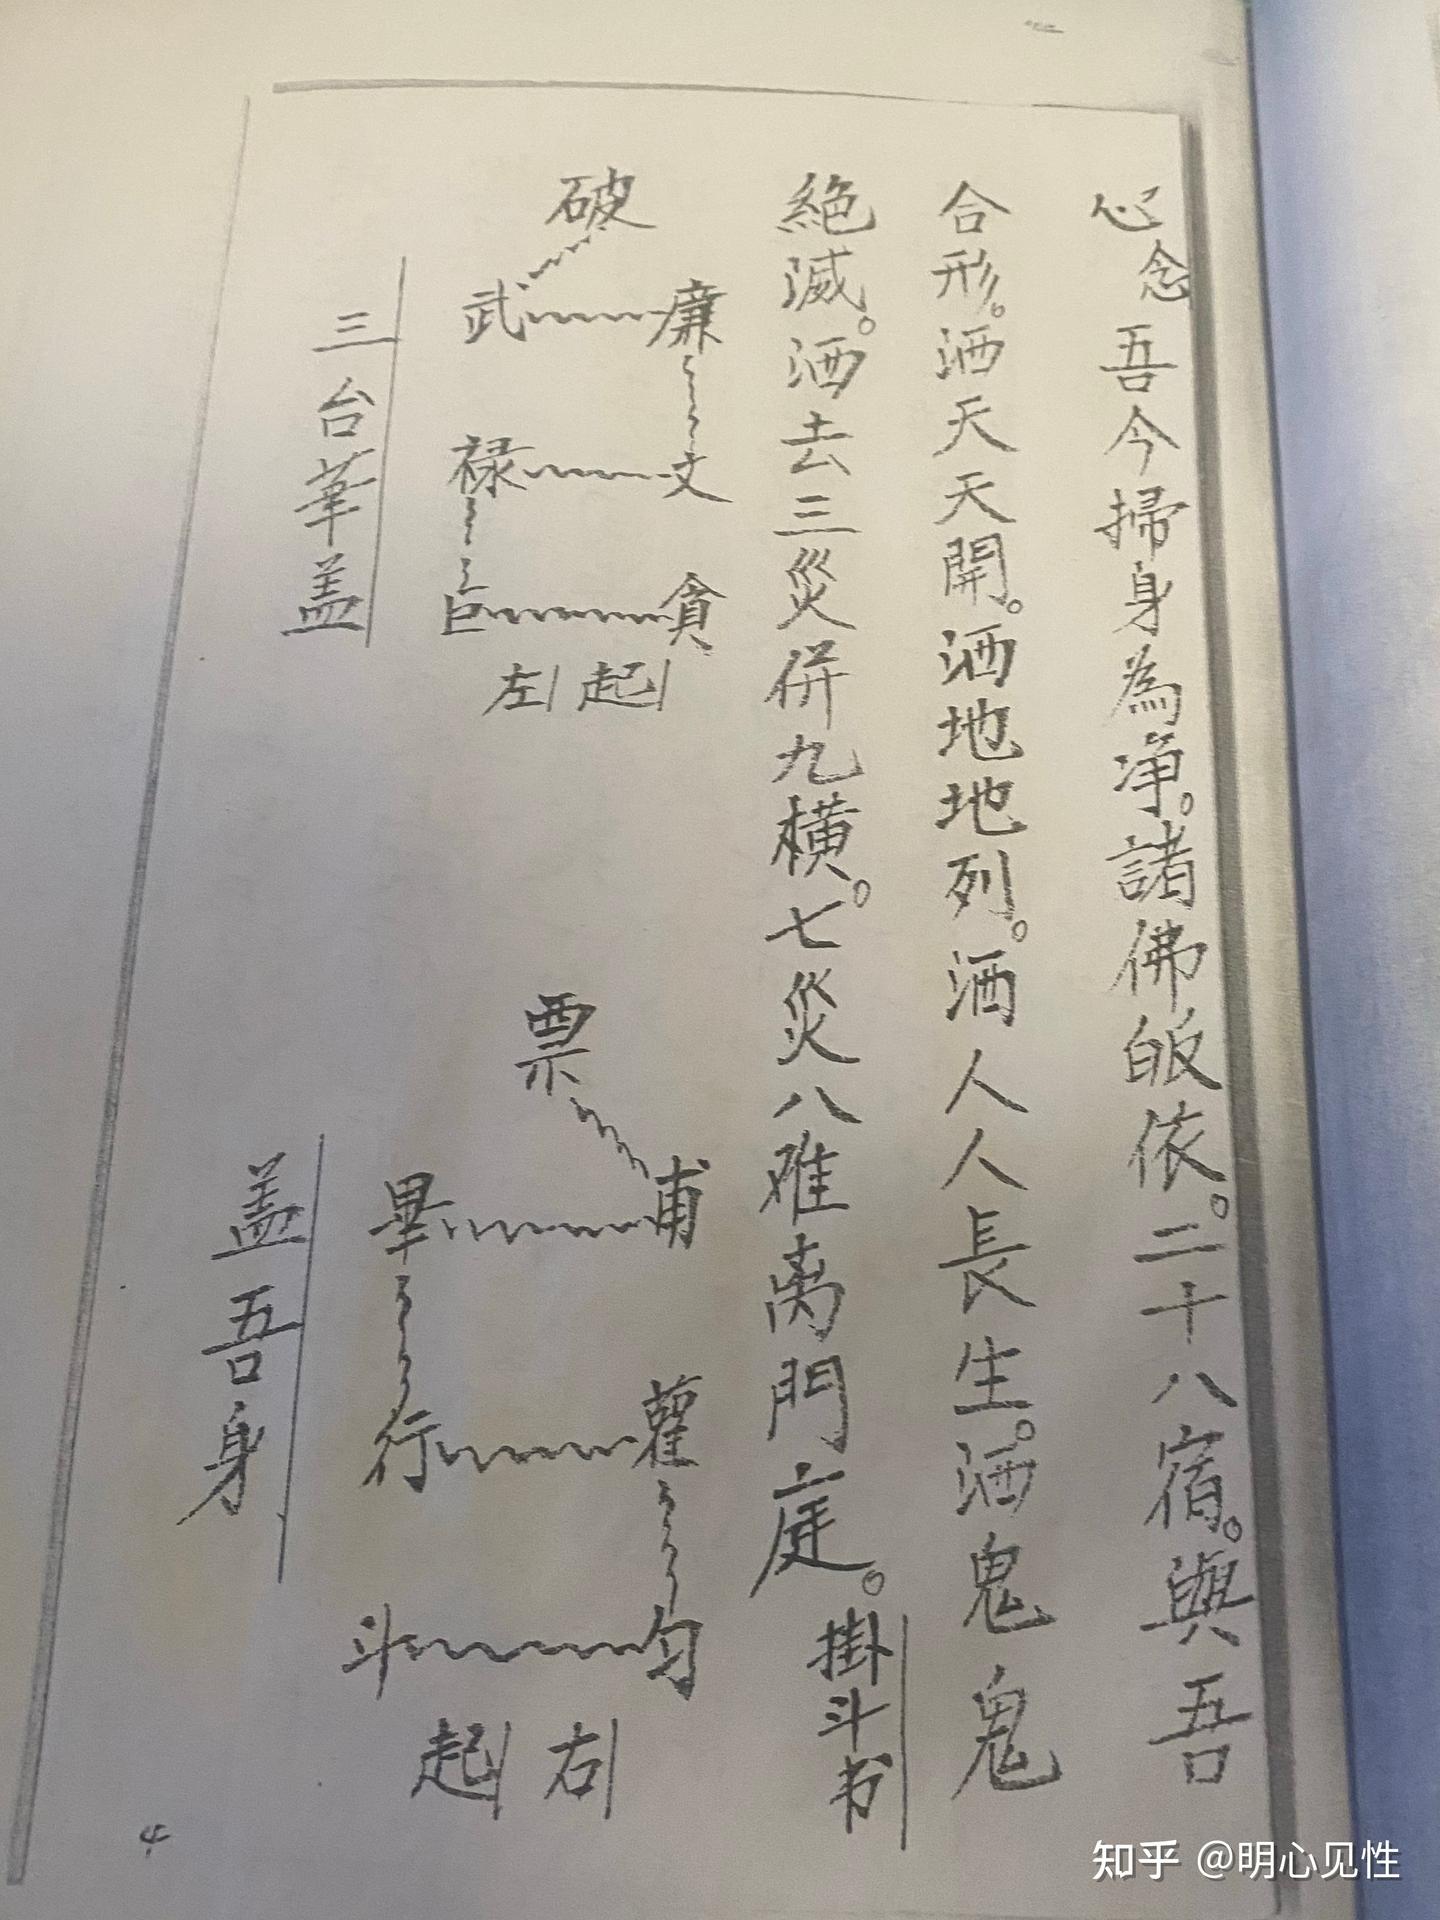 心念吾今掃身為净。諸佛皈依。二十八宿。與吾
合形。洒天天開。洒地地列。洒人人長生。洒鬼鬼
絕滅。洒去三災併九橫。七災八难离門庭。掛斗书
破
武 廉
禄 文
巨 貪
左 起
票
畢 甫
行 雚
斗 勻
起 右
三台華盖
盖吾身
4
知乎 @明心见性